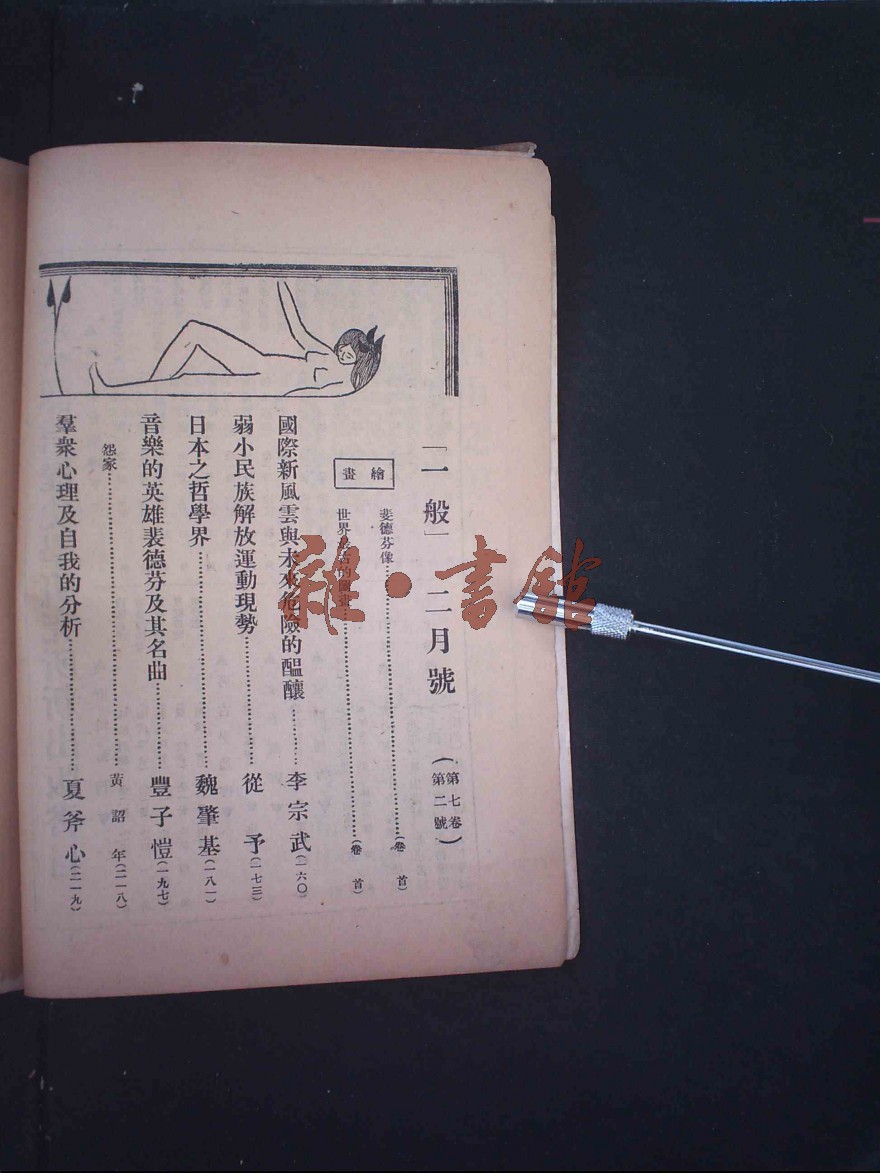 「一般」二月號（第七卷第二號）
繪畫
斐德芬像……（卷首）
世界 的圖畫……（卷首）
國際新風雲與未來危險的醞釀……李宗武（一六〇）
弱小民族解放運動現勢……從予（一七三）
日本之哲學界……魏肇基（一八一）
音樂的英雄裴德芬及其名曲……豐子愷（一九七）
怨家……黃詔年（二一八）
羣衆心理及自我的分析……夏斧心（二一九）
雜·書館